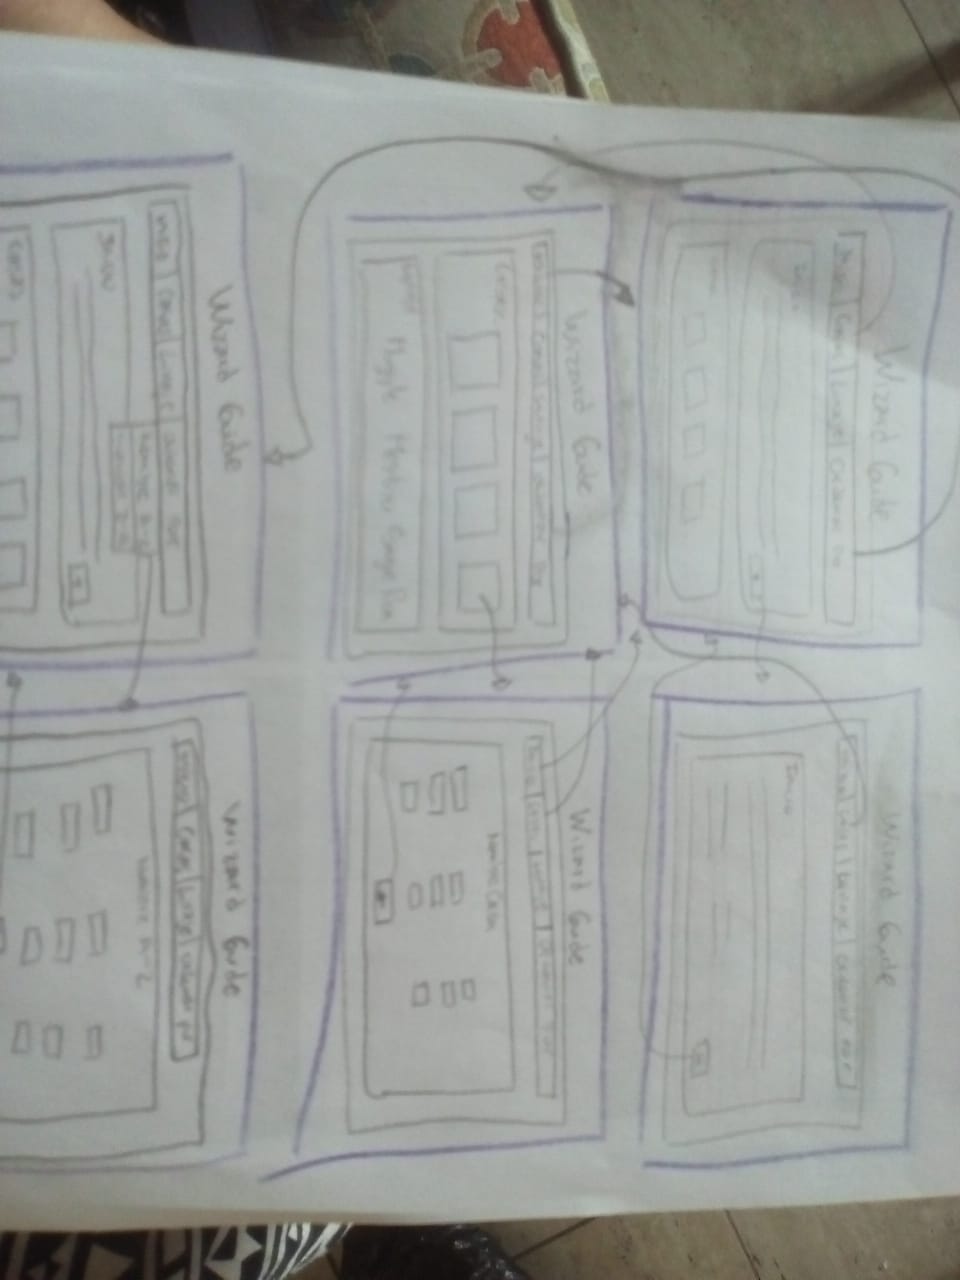 Wizard Guide
Inicio Casas Linaje Ordenar por
Inicio
Wizard Guide
Inicio Casas Linaje Ordenar por
Inicio
Wizzard Guide
Inicio Casas Linaje Ordenar Por
Casas
Linaje Muggle Mestizo Sangre Pura
Wizard Guide
Inicio Casas Linaje Ordenar Por
Nombre Casa
Wizzard Guide
Inicio Casas Linaje Ordenar Por
Nombre A-Z
Nombre Z-A
Inicio
Casas
Wizard Guide
Inicio Casas Linaje Ordenar por
Nombre A-Z